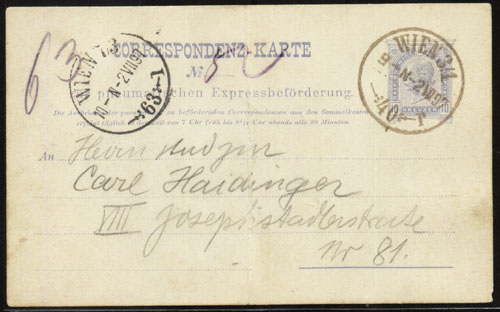 63
CORRESPONDENZ-KARTE
№ 52
pneumatischen Expressbeförderung.
Die Annahme der pneumatisch zu befördernden Correspondenzen aus den Sammelkasten
erfolgt täglich von 7 Uhr früh bis 9½ Uhr abends alle 20 Minuten.
WIEN
-2 VII 9
63-1
WIEN 3/1
N-2 VII 9
40-1
10
An Herrn
Carl Haidinger
VIII Josephstädterstraße
Nr 81.